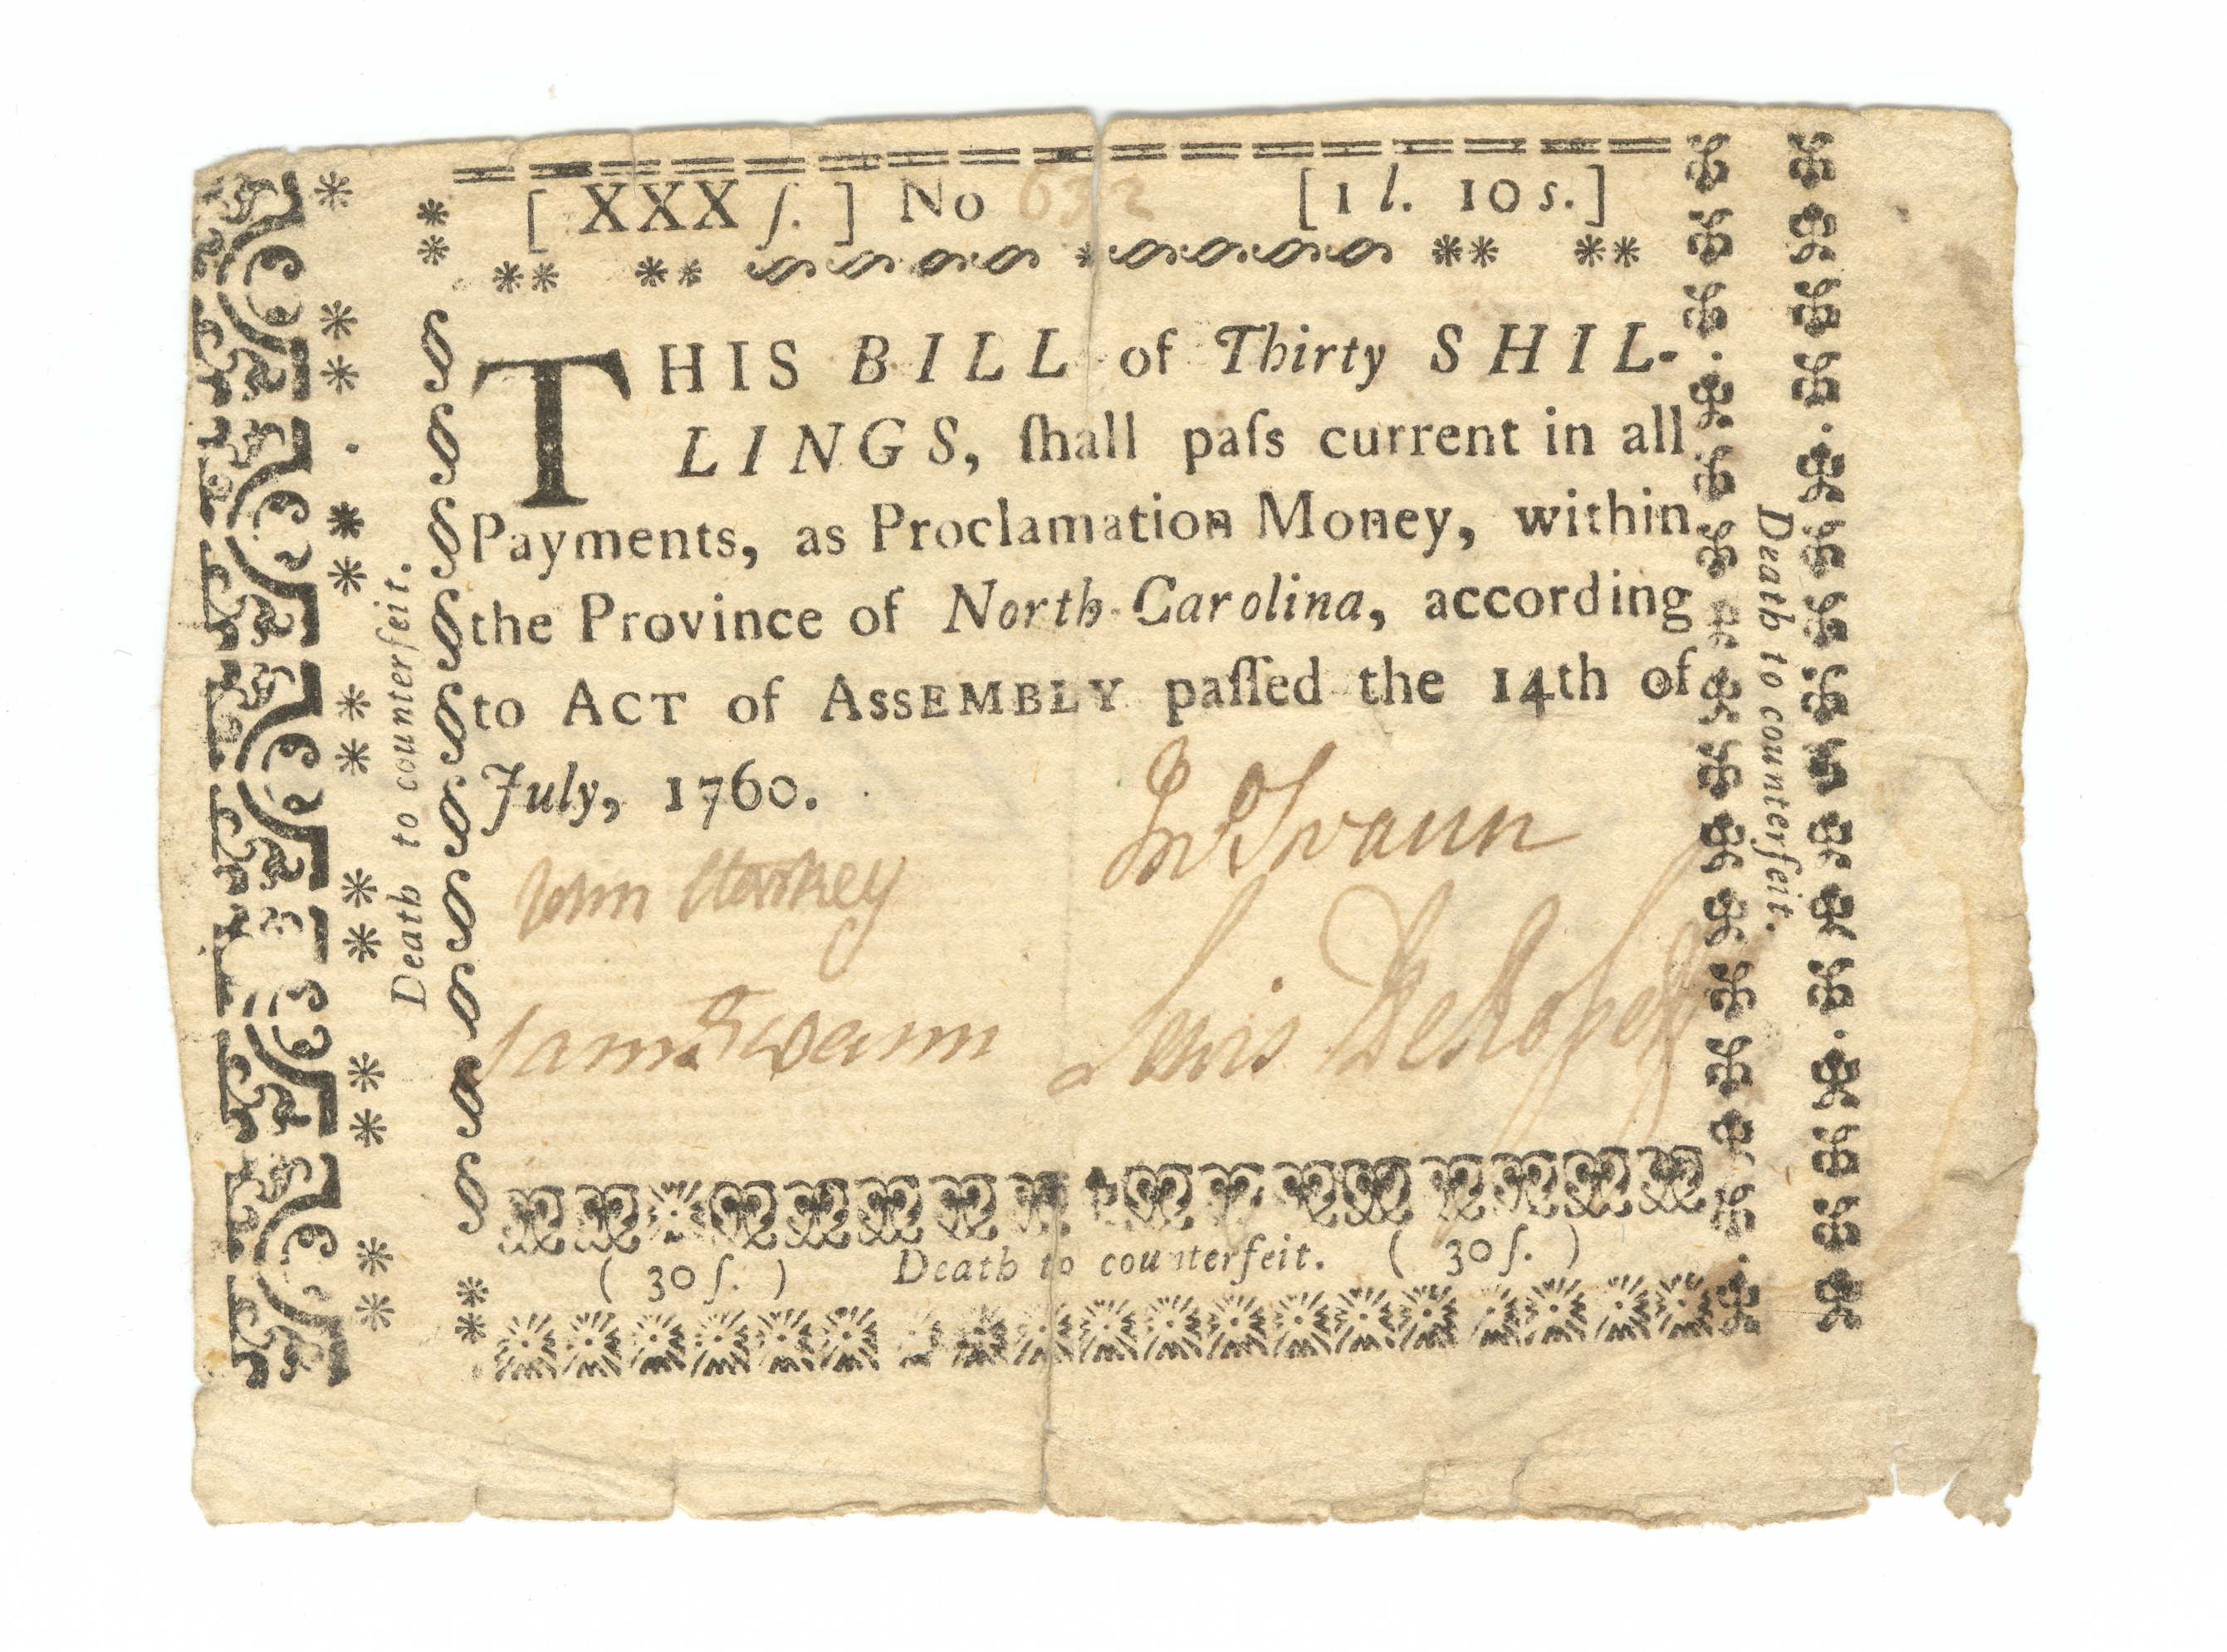 [ XXX ſ. ] No 632 [1 l. 10 s.]
THIS BILL of Thirty SHIL-
LINGS, ſhall paſs current in all
Payments, as Proclamation Money, within
the Province of North-Carolina, according
to ACT of ASSEMBLY paſſed the 14th of
July, 1760.
Jno Swann
John Starkey
Lewis DeRosset
Sam Swann
( 30 ſ. ) Death to counterfeit. ( 30 ſ. )
Death to counterfeit.
Death to counterfeit.